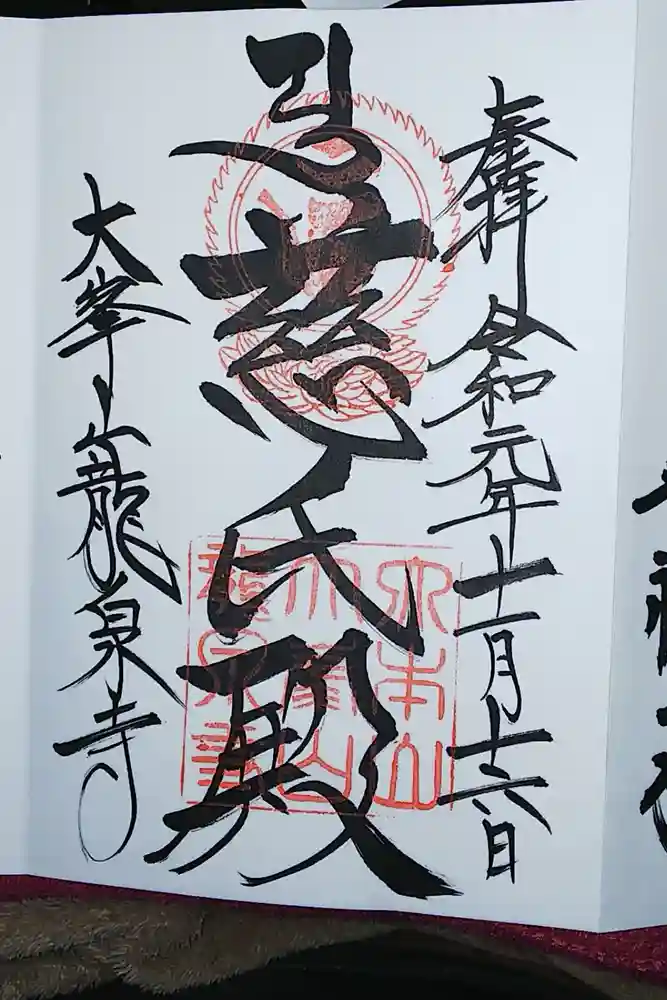 奉拝 令和元年十一月十六日
慈氏殿
大峯山 龍泉寺
大本山
大峯山
龍泉寺